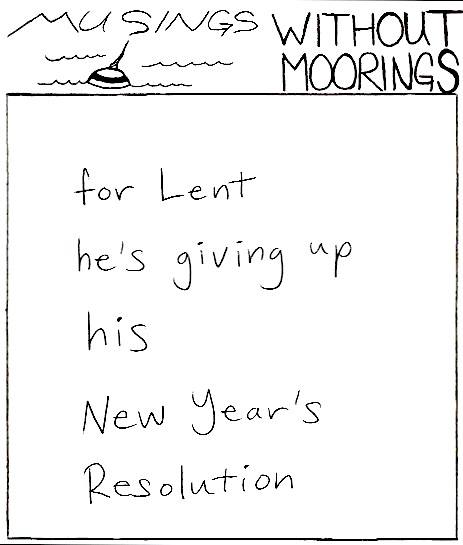 MUSINGS WITHOUT
MOORINGS
for Lent
he's giving up
his
New Year's
Resolution